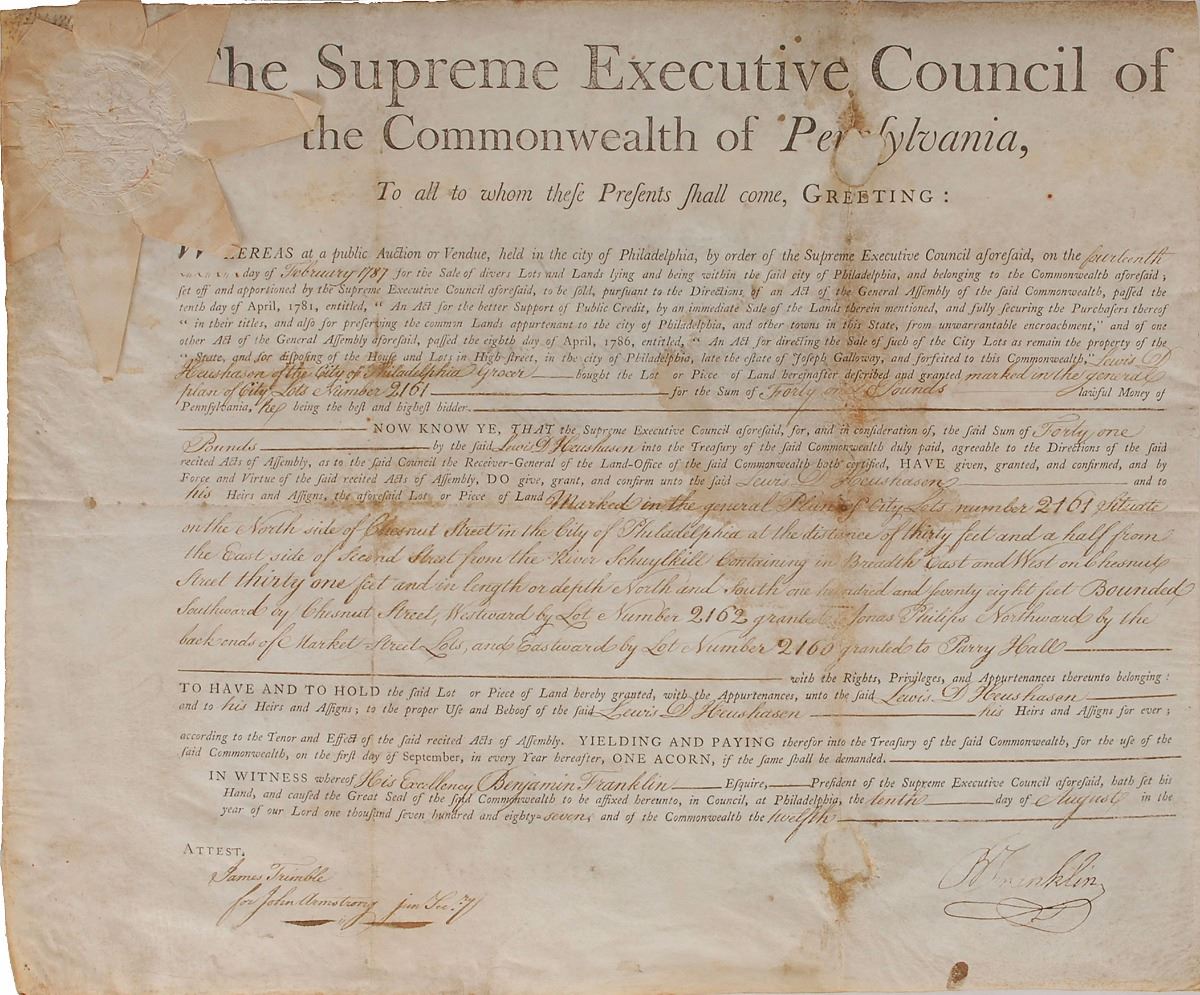 The Supreme Executive Council of
the Commonwealth of Pennsylvania,
To all to whom theſe Preſents ſhall come, GREETING:
WHEREAS at a public Auction or Vendue, held in the city of Philadelphia, by order of the Supreme Executive Council aforeſaid, on the fourteenth
day of February 1787 for the Sale of divers Lots and Lands lying and being within the ſaid city of Philadelphia, and belonging to the Commonwealth aforeſaid;
ſet off and apportioned by the Supreme Executive Council aforeſaid, to be ſold, purſuant to the Directions of an Act of the General Aſſembly of the ſaid Commonwealth, paſſed the
tenth day of April, 1781, entitled, "An Act for the better Support of Public Credit, by an immediate Sale of the Lands therein mentioned, and fully ſecuring the Purchaſers thereof
"in their titles, and alſo for preſerving the common Lands appurtenant to the city of Philadelphia, and other towns in this State, from unwarrantable encroachment," and of one
other Act of the General Aſſembly aforeſaid, paſſed the eighth day of April, 1786, entitled, "An Act for directing the Sale of ſuch of the City Lots as remain the property of the
"State, and for diſpoſing of the Houſe and Lots in High-ſtreet, in the city of Philadelphia, late the eſtate of Joſeph Galloway, and forfeited to this Commonwealth," Lewis D
Heushasen of the City of Philadelphia Grocer bought the Lot or Piece of Land hereinafter deſcribed and granted marked in the general
plan of City Lots Number 2161 for the Sum of Forty one Pounds lawful Money of
Pennſylvania, he being the beſt and higheſt bidder.
NOW KNOW YE, THAT the Supreme Executive Council aforeſaid, for, and in conſideration of, the ſaid Sum of Forty one
Pounds by the ſaid Lewis D Heushasen into the Treaſury of the ſaid Commonwealth duly paid, agreeable to the Directions of the ſaid
recited Acts of Aſſembly, as to the ſaid Council the Receiver-General of the Land-Office of the ſaid Commonwealth hath certified, HAVE given, granted, and confirmed, and by
Force and Virtue of the ſaid recited Acts of Aſſembly, DO give, grant, and confirm unto the ſaid Lewis D Heushasen and to
his Heirs and Aſſigns, the aforeſaid Lot or Piece of Land Marked in the general Plan of City Lots number 2161 Situate
on the North side of Chesnut Street in the City of Philadelphia at the distance of thirty feet and a half from
the East side of Second Street from the River Schuylkill Containing in Breadth East and West on Chesnut
Street thirty one feet and in length or depth North and South one hundred and seventy eight feet Bounded
Southward by Chesnut Street, Westward by Lot Number 2162 granted to Jonas Philips Northward by the
back ends of Market Street Lots, and Eastward by Lot Number 2160 granted to Parry Hall
with the Rights, Privileges, and Appurtenances thereunto belonging:
TO HAVE AND TO HOLD the ſaid Lot or Piece of Land hereby granted, with the Appurtenances, unto the ſaid Lewis D Heushasen
and to his Heirs and Aſſigns; to the proper Uſe and Behoof of the ſaid Lewis D Heushasen his Heirs and Aſſigns for ever;
according to the Tenor and Effect of the ſaid recited Acts of Aſſembly. YIELDING AND PAYING therefor into the Treaſury of the ſaid Commonwealth, for the uſe of the
ſaid Commonwealth, on the firſt day of September, in every Year hereafter, ONE ACORN, if the ſame ſhall be demanded.
IN WITNESS whereof His Excellency Benjamin Franklin Eſquire, Preſident of the Supreme Executive Council aforeſaid, hath ſet his
Hand, and cauſed the Great Seal of the ſaid Commonwealth to be affixed hereunto, in Council, at Philadelphia, the tenth day of August in the
year of our Lord one thouſand ſeven hundred and eighty-seven, and of the Commonwealth the twelfth
ATTEST.
James Trimble
for John Armstrong jun Sec.ry
B Franklin